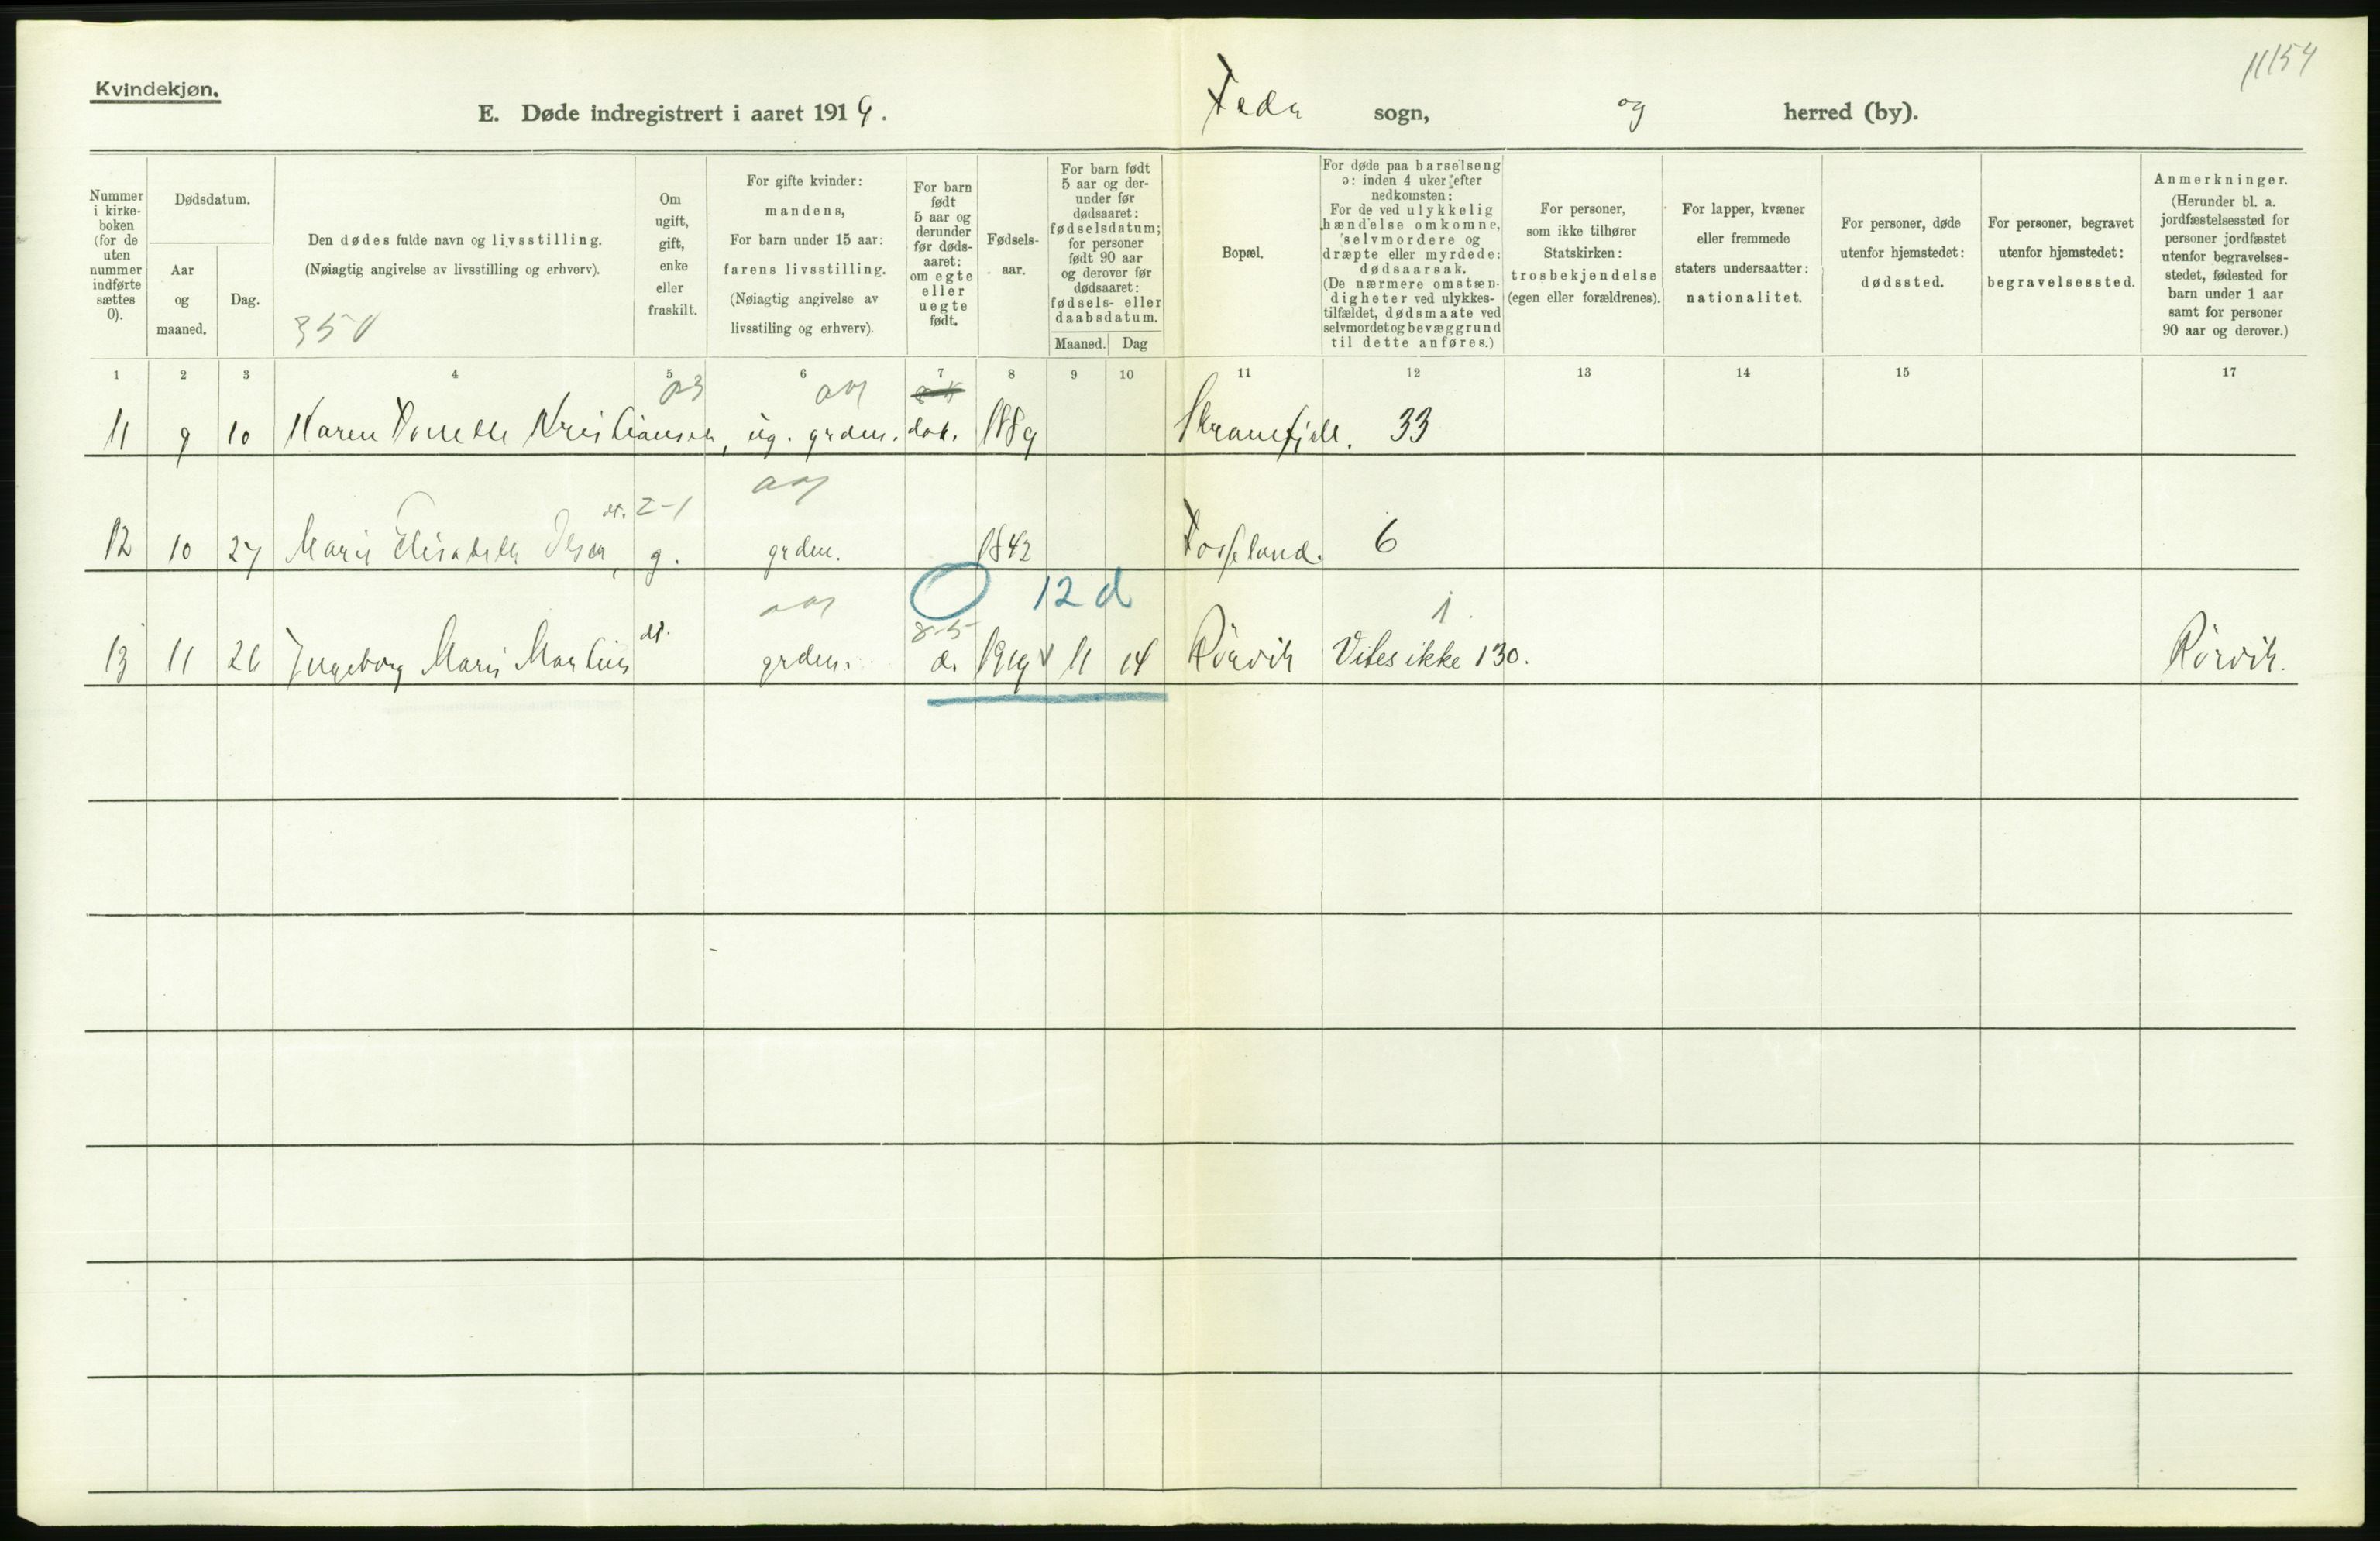 11154
Kvindekjøn.
E. Døde indregistrert i aaret 1919.
Feda sogn, og herred (by).
Nummer i kirkeboken (for de uten nummer indførte sættes 0).
Dødsdatum.
Aar og maaned.
Dag.
Den dødes fulde navn og livsstilling.
(Nøiagtig angivelse av livsstilling og erhverv).
350
Om ugift, gift, enke eller fraskilt.
For gifte kvinder:
mandens,
For barn under 15 aar:
farens livsstilling.
(Nøiagtig angivelse av
livsstiling og erhverv).
For barn født 5 aar og derunder før dødsaaret: om egte eller uegte født.
Fødselsaar.
For barn født 5 aar og derunder før dødsaaret: fødselsdatum; for personer født 90 aar og derover før dødsaaret: fødsels- eller daabsdatum.
Maaned. Dag
Bopæl.
For døde paa barselseng ɔ: inden 4 uker efter nedkomsten:
For de ved ulykkelig hændelse omkomne, selvmordere og dræpte eller myrdede: dødsaarsak.
(De nærmere omstændigheter ved ulykkestilfældet, dødsmaate ved selvmordet og bevæggrund til dette anføres.)
For personer, som ikke tilhører Statskirken: trosbekjendelse (egen eller forældrenes).
For lapper, kvæner eller fremmede staters undersaatter: nationalitet.
For personer, døde utenfor hjemstedet: dødssted.
For personer, begravet utenfor hjemstedet: begravelsessted.
Anmerkninger.
(Herunder bl. a. jordfæstelsessted for personer jordfæstet utenfor begravelsesstedet, fødested for barn under 1 aar samt for personer 90 aar og derover.)
1 2 3 4 5 6 7 8 9 10 11 12 13 14 15 17
11 9 10 Karen Kristiansen, ug. grdm. dat. 1889 33
12 10 27 Marie Elisabeth dt. 2-1 g. grdm. 1842 Fosseland. 6
12 d
13 11 26 Ingeborg Marie dt. grdm. 8-5 1919 11 14 Rörvik Vites ikke 130. 1 Rörvik.